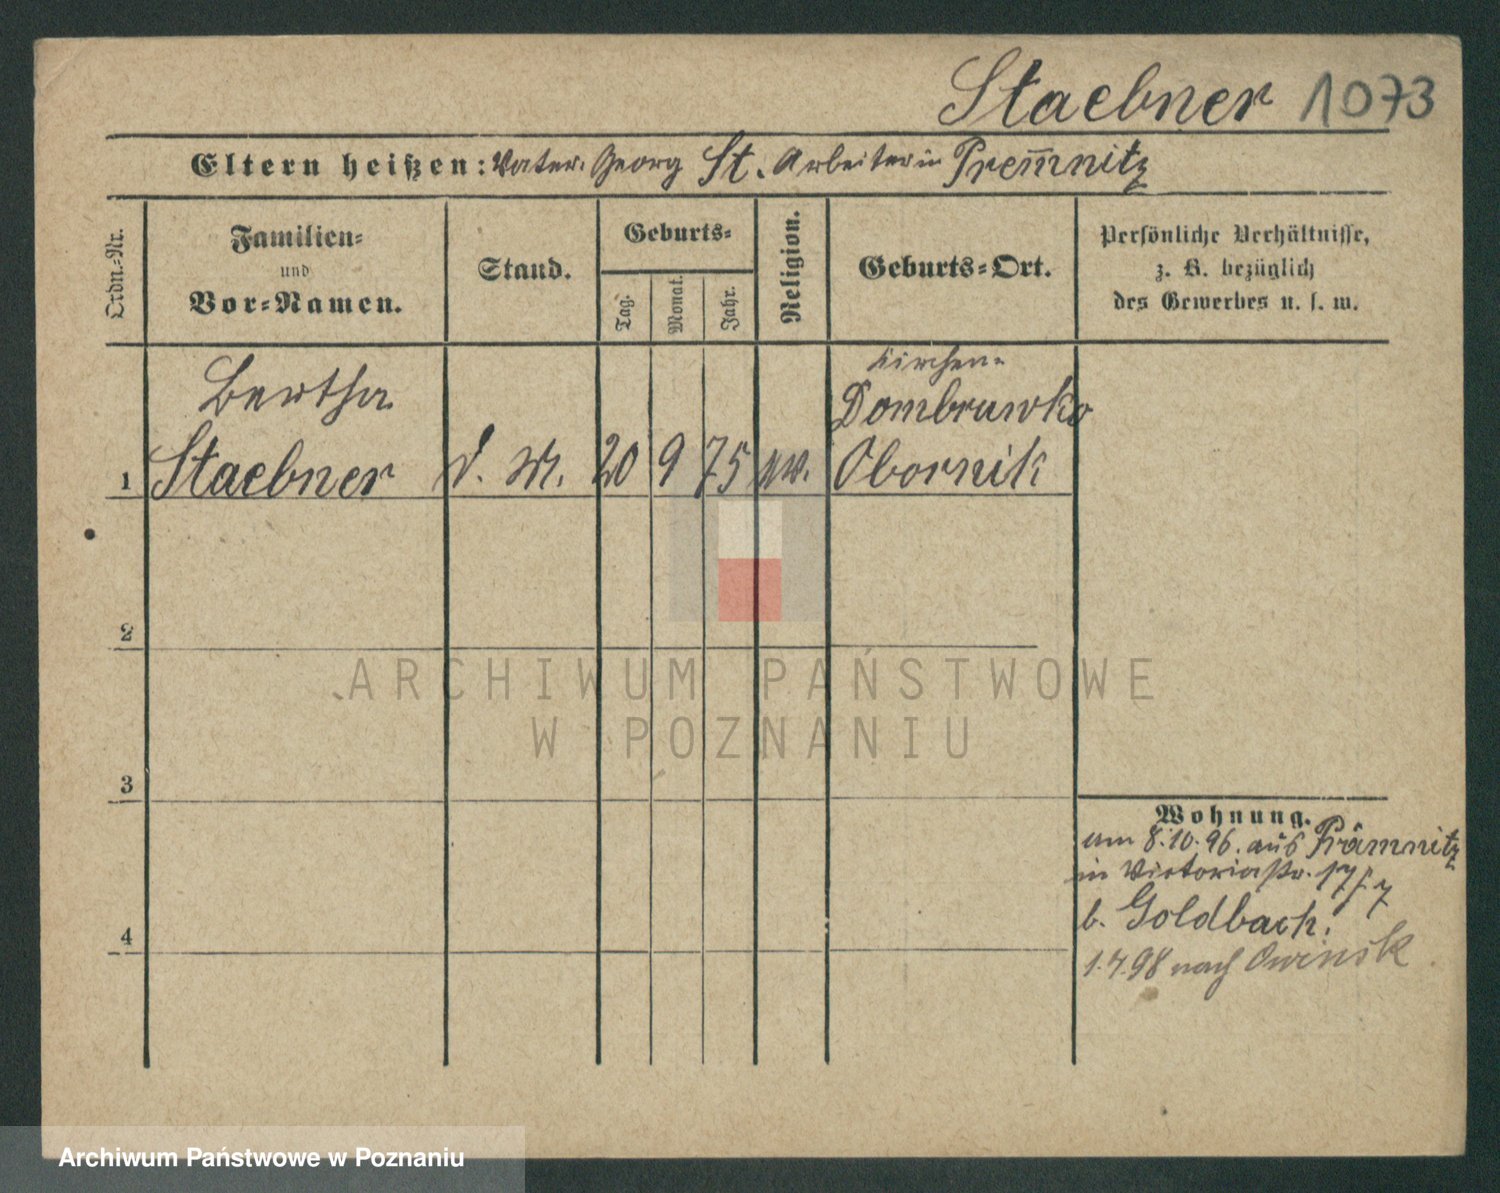 Staebner 1073
Eltern heißen: Vater: Georg St. Arbeiter in Prem̅nitz
Ordn.-Nr.
Familien-
und
Vor-Namen.
Stand.
Geburts-
Tag.
Monat.
Jahr.
Religion.
Geburts-Ort.
Persönliche Verhältnisse,
z. B. bezüglich
des Gewerbes u. s. w.
Bertha
Kirchen-
Dombruwko
1 Staebner d. M. 20 9 75 ev. Obornik
2
ARCHIWUM PAŃSTWOWE
W POZNANIU
3
Wohnung.
am 8.10.96. aus Prämnitz
in Victoriastr. 17/7
b. Goldbach.
4
1.7.98 nach Owinsk
Archiwum Państwowe w Poznaniu